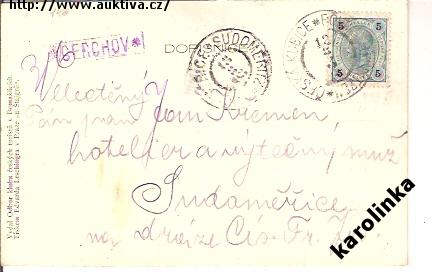 © - http://www.auktiva.cz/
*CERCHOV*
DOPISNICE
SUDOMĚŘICE
ČESKÁ KUBICE
5 5
5 5
Velectěný
Pán pan Jan Kremen
hotelier a výtečný muž
Sudoměřice
na dráze Cís. Fr. J.
Vydal Odbor klubu českých turistů v Domažlicích.
Tiskem Eduarda Leschingra v Praze
karolinka